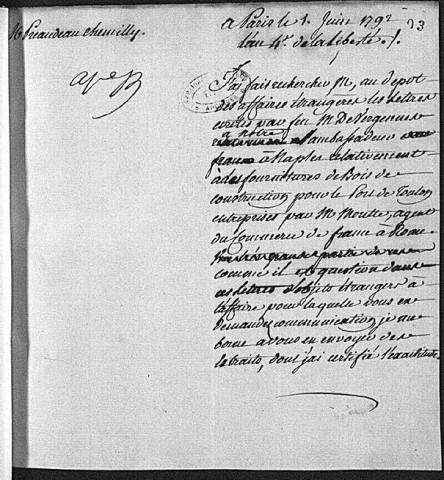 M Preaudeau chemilly.
a Paris le 1. Juin 1792
23
l'an 4e. de la liberté ./.
J'ai fait rechercher M, au depot
des affaires étrangeres les lettres
ecrites par feu M. De Vergennes
a notre
ambassadeur
france a Naples relativement
a des fournitures de Bois de
construction pour le Port de Toulon
entreprises par M. Moutte, agent
du Commerce de france a Rome.
une très grande partie de
comme il est question dans
ces lettres d'objets étrangers a
l'affaire pour laquelle vous en
demandez communication, je me
borne a vous en envoyer des
extraits, dont j'ai certifié l'exactitude.